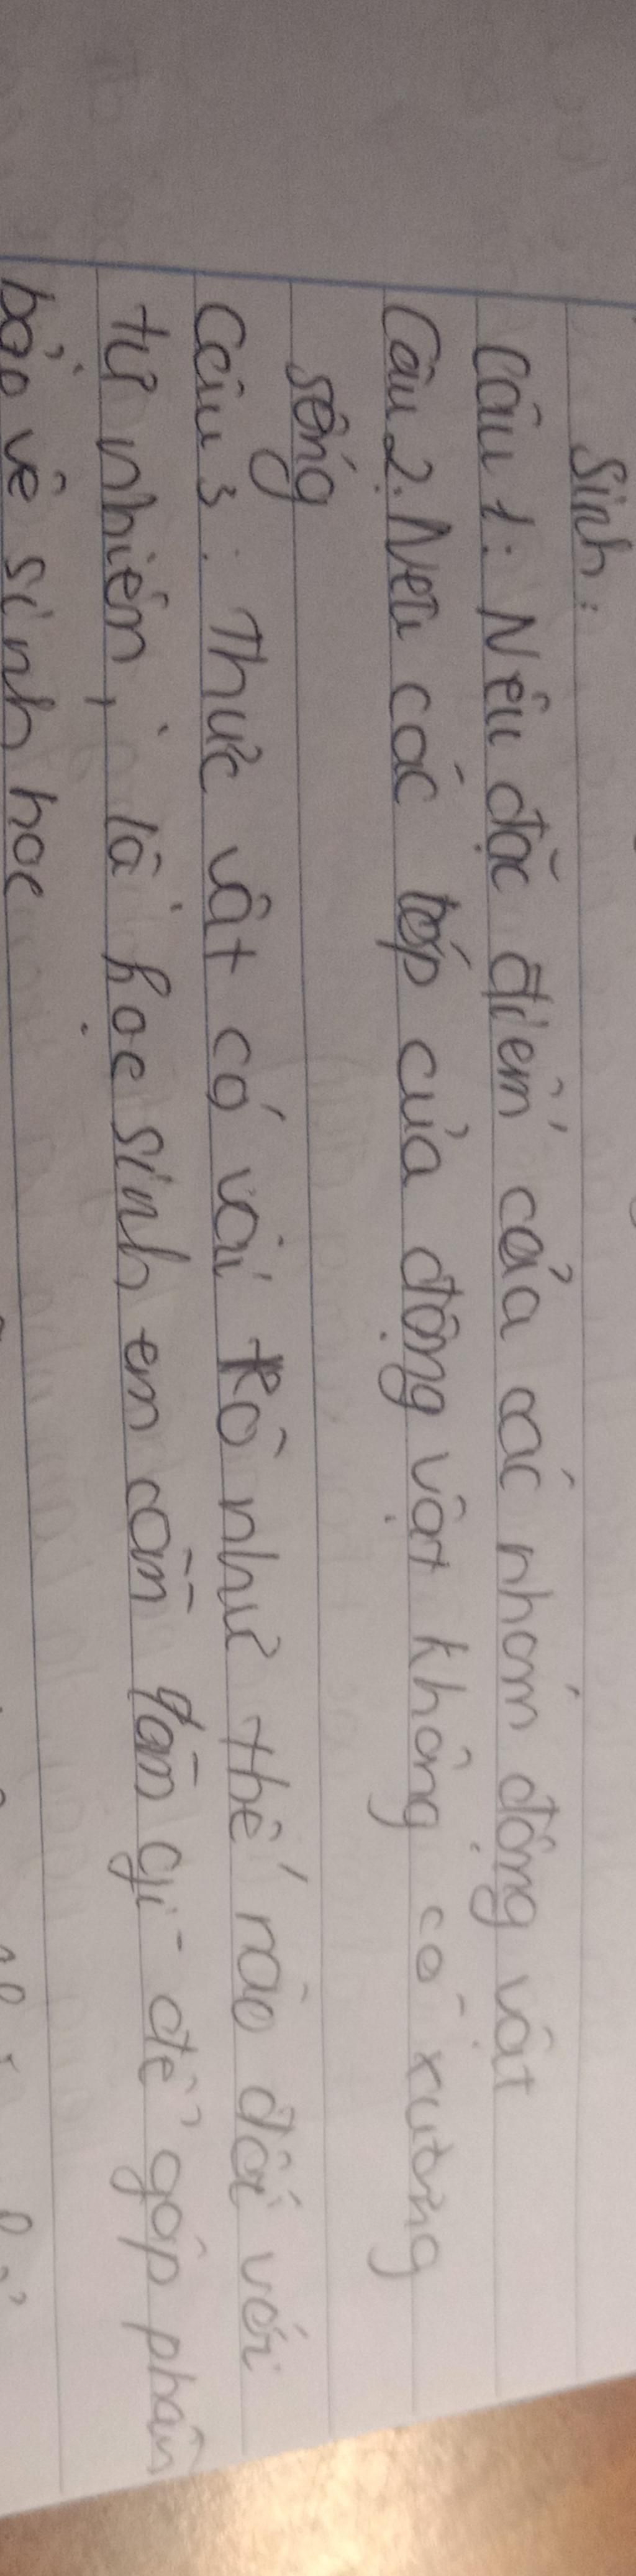 Sinh:
Câu 1: Nêu đặc điểm của các nhóm động vật
Câu 2. Nêu các lớp của động vật không có xương
sống
Câu 3: Thực vật có vai trò như thế nào đối với
tự nhiên, là học sinh em cần làm gì để góp phần
bảo vệ sinh học